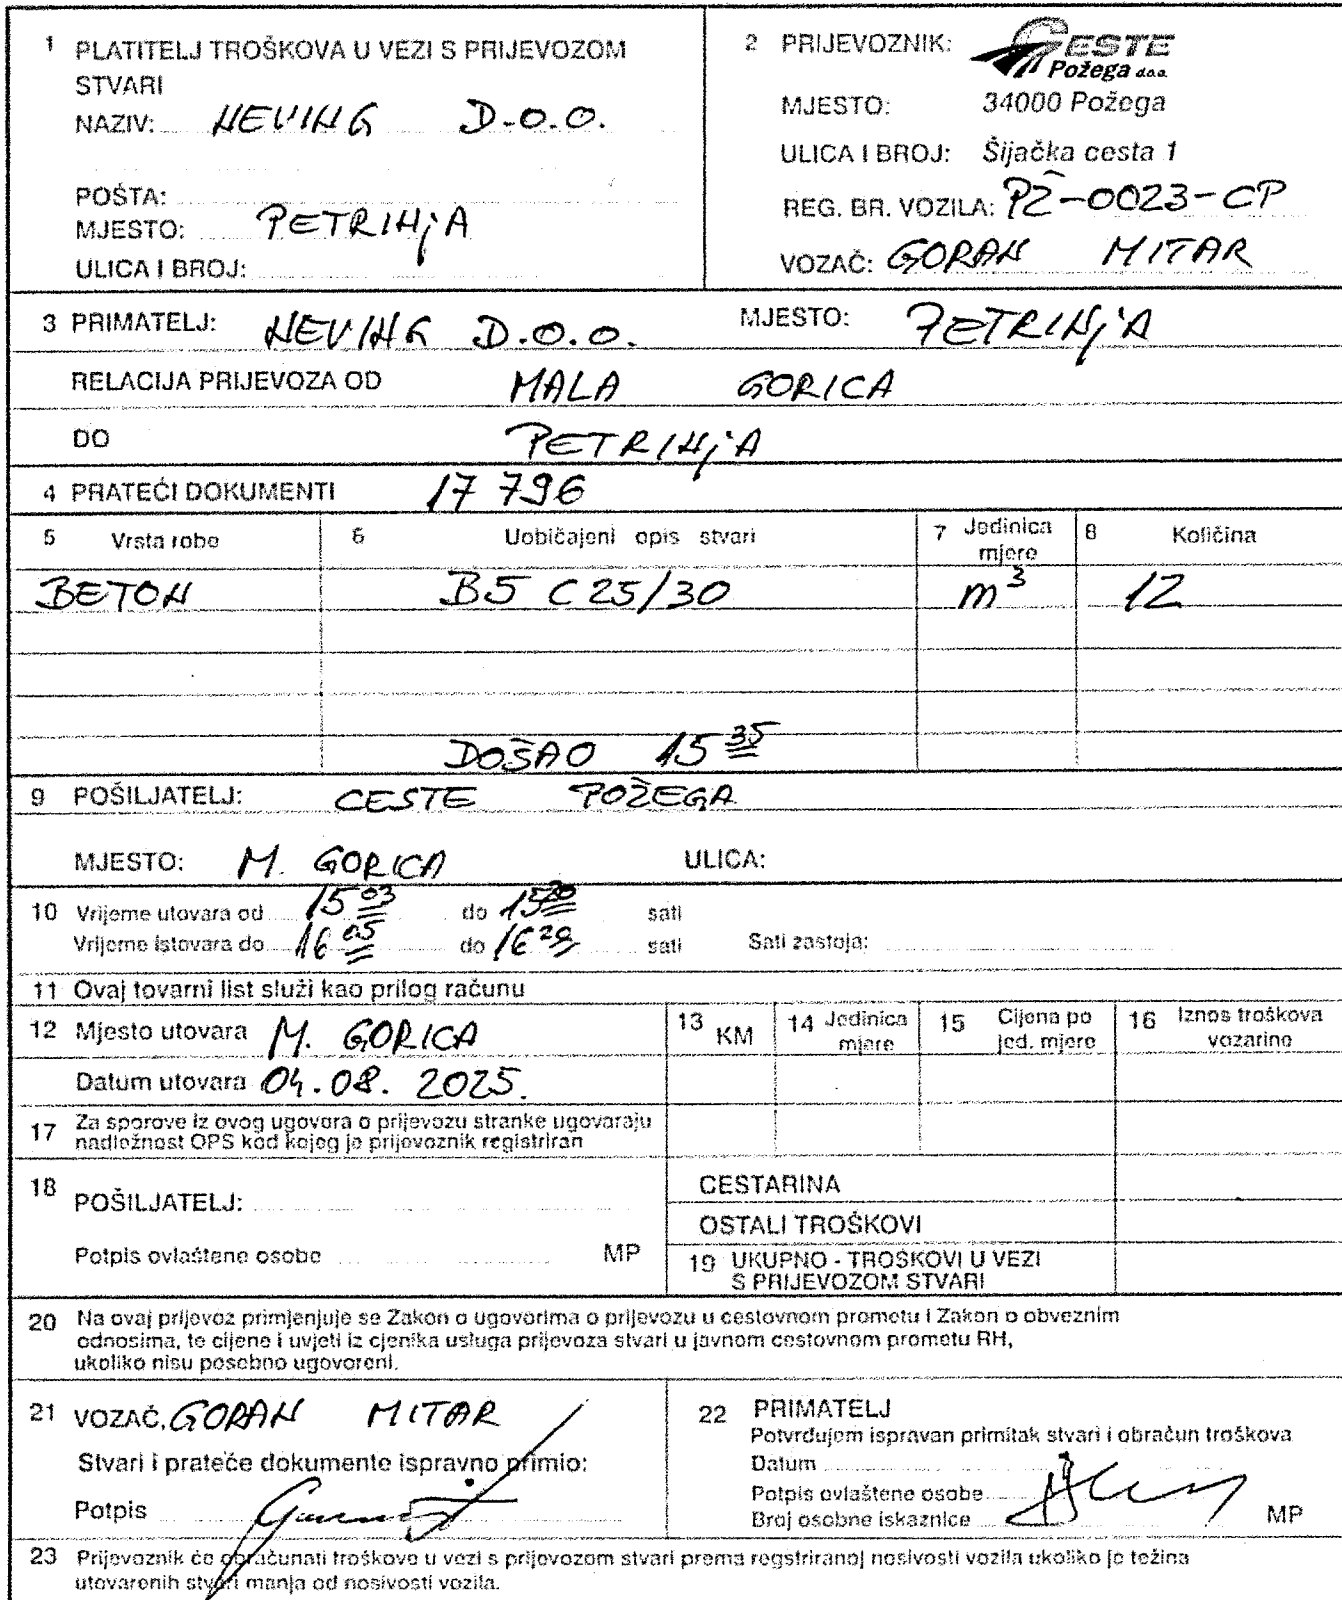 1 PLATITELJ TROŠKOVA U VEZI S PRIJEVOZOM
STVARI
NAZIV: NEVING D.O.O.
POŠTA:
MJESTO: PETRINjA
ULICA I BROJ:
2 PRIJEVOZNIK: CESTE
Požega d.o.o.
MJESTO: 34000 Požega
ULICA I BROJ: Šijačka cesta 1
REG. BR. VOZILA: PŽ-0023-CP
VOZAČ: GORAN MITAR
3 PRIMATELJ: NEVING D.O.O. MJESTO: PETRINjA
RELACIJA PRIJEVOZA OD MALA GORICA
DO PETRINjA
4 PRATEĆI DOKUMENTI 17 796
5 Vrsta robe 6 Uobičajeni opis stvari 7 Jedinica mjere 8 Količina
BETON B5 C 25/30 m³ 12
DOŠAO 15 35
9 POŠILJATELJ: CESTE POŽEGA
MJESTO: M. GORICA ULICA:
10 Vrijeme utovara od 15 03 do 15 20 sati
Vrijeme istovara do 16 05 do 16 29 sati Sati zastoja:
11 Ovaj tovarni list služi kao prilog računu
12 Mjesto utovara M. GORICA
Datum utovara 04.08. 2025.
13 KM 14 Jedinica mjere 15 Cijena po jed. mjere 16 Iznos troškova vozarine
17 Za sporove iz ovog ugovora o prijevozu stranke ugovaraju
nadležnost OPS kod kojeg je prijevoznik registriran
18 POŠILJATELJ:
Potpis ovlaštene osobe MP
CESTARINA
OSTALI TROŠKOVI
19 UKUPNO - TROŠKOVI U VEZI
S PRIJEVOZOM STVARI
20 Na ovaj prijevoz primjenjuje se Zakon o ugovorima o prijevozu u cestovnom prometu i Zakon o obveznim
odnosima, te cijene i uvjeti iz cjenika usluga prijevoza stvari u javnom cestovnom prometu RH,
ukoliko nisu posebno ugovoreni.
21 VOZAČ, GORAN MITAR
Stvari i prateće dokumente ispravno primio:
Potpis
22 PRIMATELJ
Potvrđujem ispravan primitak stvari i obračun troškova
Datum
Potpis ovlaštene osobe
Broj osobne iskaznice MP
23 Prijevoznik će obračunati troškove u vezi s prijevozom stvari prema regstriranoj nosivosti vozila ukoliko je težina
utovarenih stvari manja od nosivosti vozila.